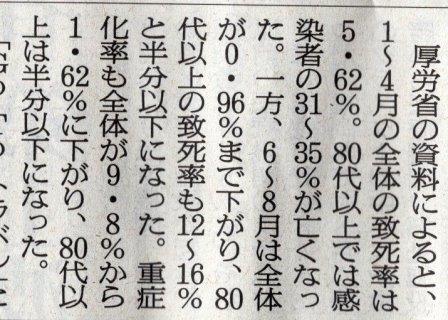 厚労省の資料によると、
1〜4月の全体の致死率は
5・62%。80代以上では感
染者の31〜35%が亡くなっ
た。一方、6〜8月は全体
が0・96%まで下がり、80
代以上の致死率も12〜16%
と半分以下になった。重症
化率も全体が9・8%から
1・62%に下がり、80代以
上は半分以下になった。